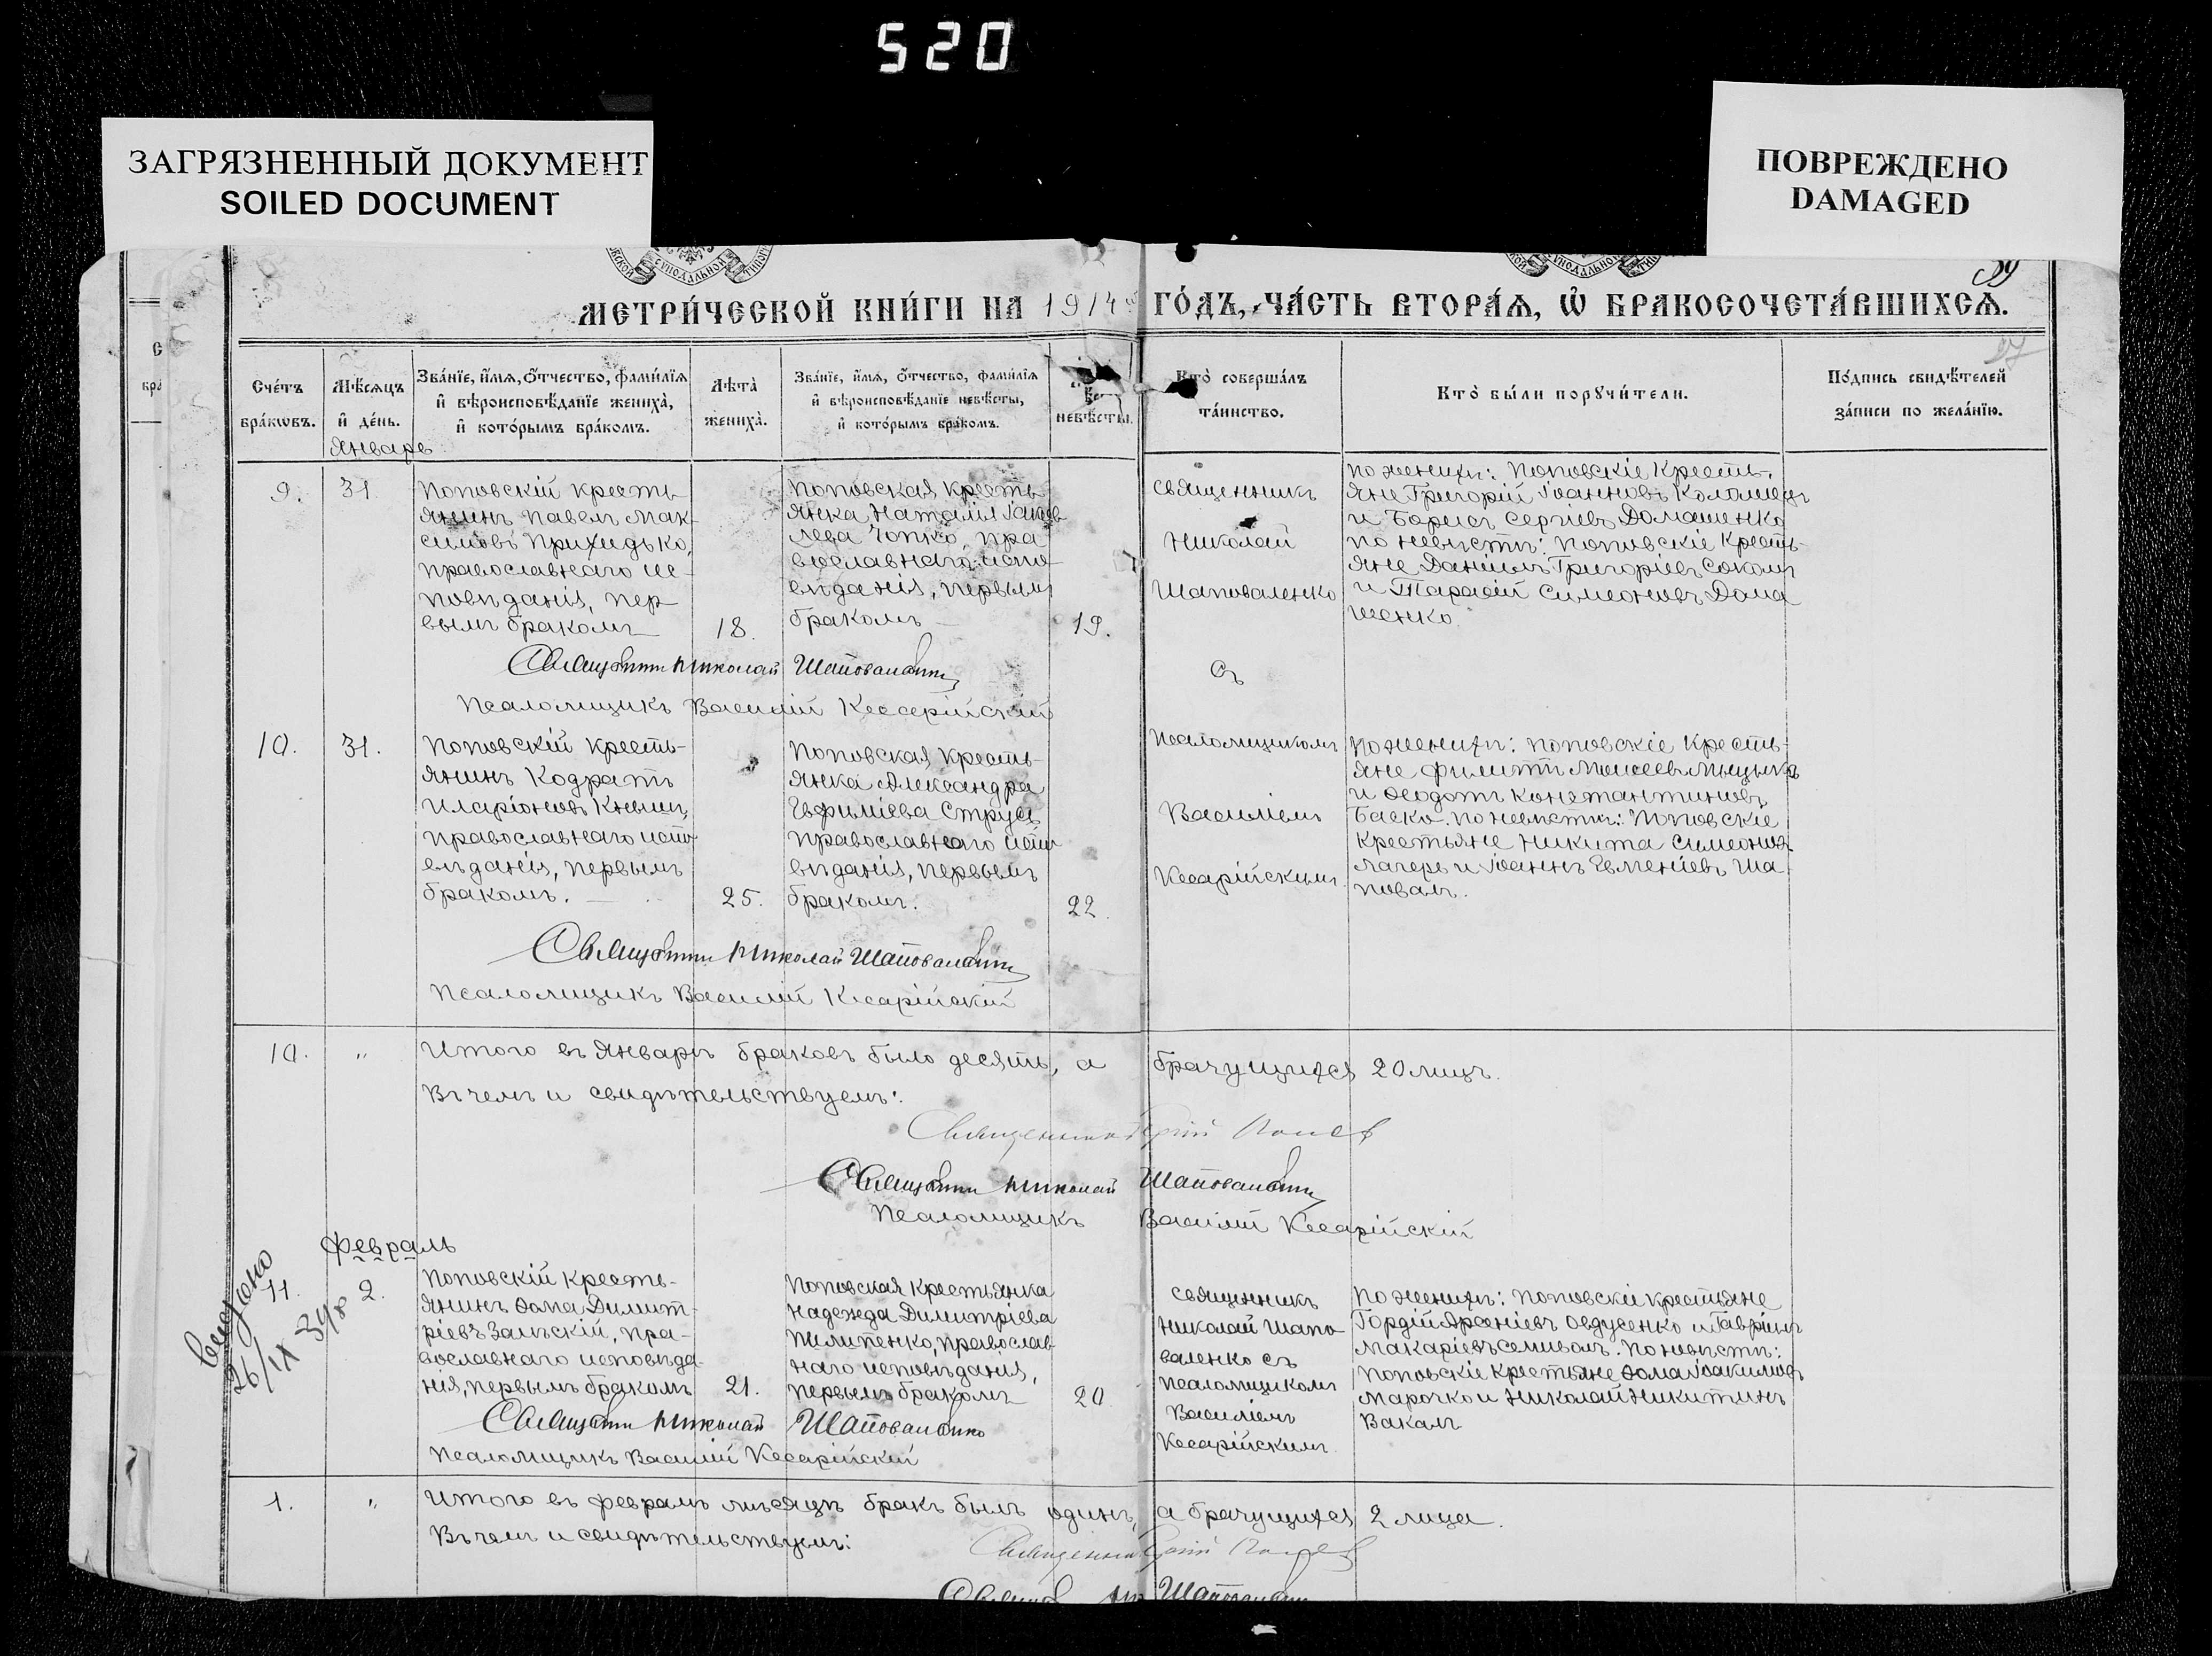 520
ЗАГРЯЗНЕННЫЙ ДОКУМЕНТ
SOILED DOCUMENT
ПОВРЕЖДЕНО
DAMAGED
СѴНОДАЛЬНОЙ
СѴНОДАЛЬНОЙ
39
МЕТРИ́ЧЕСКОЙ КНИ́ГИ НА 1914 ГО́ДЪ, ЧА́СТЬ ВТОРА́Ѧ, Ѡ҆ БРАКОСОЧЕТА́ВШИХСѦ.
37
Сче́тъ
бра́кѡвъ.
Мѣ́сѧцъ
и҆ де́нь.
Зва́нїе, и҆́мѧ, ѻ҆́тчество, фами́лїѧ
и҆ вѣроисповѣ́данїе жениха̀,
и҆ кото́рымъ бра́комъ.
Лѣта̀
жениха̀.
Зва́нїе, и҆́мѧ, ѻ҆́тчество, фами́лїѧ
и҆ вѣроисповѣ́данїе невѣ́сты,
и҆ кото́рымъ бра́комъ.
невѣ́сты.
Кто̀ соверша́лъ
та́инство.
Кто̀ бы́ли порꙋчи́тели.
По́дпись свидѣ́телей
за́писи по жела́нїю.
Январь
9.
31.
Поповскій кресть-
янинъ Павелъ Мак-
симовъ Приходько,
православнаго ис-
повѣданія, пер
вымъ бракомъ
18.
Поповская кресть-
янка Наталія Іаков-
лева Чопко, пра
вославнаго испо-
вѣданія, первымъ
бракомъ
19.
Священникъ
Николай
Шаповаленко
съ
Псаломщикомъ
Василіемъ
Кесарійскимъ
По женихѣ: Поповскіе кресть-
яне Григорій Іоанновъ Коломіецъ
и Борисъ Сергіевъ Домашенко
по невѣстѣ: Поповскіе кресть-
яне Даніилъ Григоріевъ Соколъ
и Тарасій Симеоновъ Дома
шенко.
Священникъ Николай Шаповаленко
Псаломщикъ Василій Кесарійскій
10.
31.
Поповскій кресть-
янинъ Кодратъ
Иларіоновъ Кнышъ,
православнаго испо-
вѣданія, первымъ
бракомъ.
25.
Поповская кресть-
янка Александра
Евфиміева Струсь
православнаго испо-
вѣданія, первымъ
бракомъ.
22.
По женихѣ: Поповскіе кресть-
яне Филиппъ Моисеевъ
и Ѳеодотъ Константиновъ
Баско. По невѣстѣ: Поповскіе
крестьяне Никита Симеоновъ
Лагеръ и Іоаннъ Евменіевъ Ша
повалъ.
Священникъ Николай Шаповаленко
Псаломщикъ Василій Кесарійскій
10. " Итого въ Январѣ браковъ было десять, а брачущихся 20 лицъ.
Въ чемъ и свидѣтельствуемъ:
Священникъ
Священникъ Николай Шаповаленко
Псаломщикъ Василій Кесарійскій
Февраль
26/IX
11.
2.
Поповскій кресть-
янинъ Ѳома Димит-
ріевъ Заѣскій, пра-
вославнаго исповѣда-
нія, первымъ бракомъ
21.
Поповская крестьянка
Надежда Димитріева
Пилипенко, православ-
наго исповѣданія,
первымъ бракомъ
20.
Священникъ
Николай Шапо
валенко съ
Псаломщикомъ
Василіемъ
Кесарійскимъ.
По женихѣ: Поповскіе крестьяне
Гордій Арсеніевъ Овдусенко и Гавріилъ
Макаріевъ Семиволъ. По невѣстѣ:
Поповскіе крестьяне Ѳома Іоакимовъ
Марочко и Николай Никитинъ
Вакалъ
Священникъ Николай Шаповаленко
Псаломщикъ Василій Кесарійскій
1. " Итого въ Февралѣ мѣсяцѣ бракъ былъ одинъ, а брачущихся 2 лица.
Въ чемъ и свидѣтельствуемъ:
Священникъ